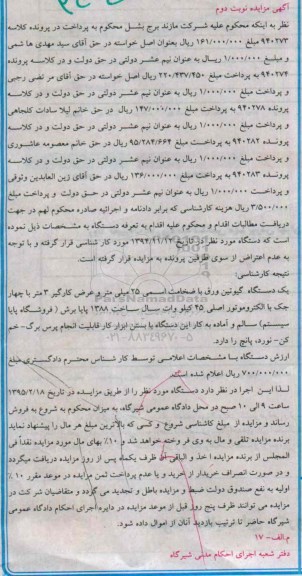 آگهی مزایده نوبت دوم
نظر به اینکه محکوم علیه شرکت مازند برج بتسل محکوم به پرداخت در پرونده کلاسه
۹۴۰۲۷۳ مبلغ ۱۶۱/۰۰۰/۰۰۰ ریال بعنوان اصل خواسته در حق آقای سید مهدی ها شمی
و مبلغ ۱/۰۰۰/۰۰۰ ریال به عنوان نیم عشر دولتی در حق دولت و در کلاسه پرونده
۹۴۰۲۷۴ به پرداخت مبلغ ۲۲۰/۴۳۷/۴۵۰ ریال اصل خواسته در حق آقای مر تضی رجبی
و پرداخت مبلغ ۱/۰۰۰/۰۰۰ ریال به عنوان نیم عشر دولتی در حق دولت و در کلاسه
پرونده ۹۴۰۲۷۸ به پرداخت مبلغ ۱۴۷/۰۰۰/۰۰۰ ریال در حق خانم لیلا سادات کلجاهی
و پرداخت مبلغ ۱/۰۰۰/۰۰۰ ریال به عنوان نیم عشر دولتی در حق دولت و در کلاسه
پرونده ۹۴۰۲۸۲ به پرداخت مبلغ ۹۵/۲۸۴/۶۶۴ ریال در حق خانم معصومه عاشوری
و پرداخت مبلغ ۱/۰۰۰/۰۰۰ ریال به عنوان نیم عشر دولتی در حق دولت و در کلاسه
پرونده ۹۴۰۲۸۳ به پرداخت مبلغ ۱۳۶/۰۰۰/۰۰۰ ریال در حق آقای زین العابدین وثوقی
و پرداخت ۱/۰۰۰/۰۰۰ ریال به عنوان نیم عشر دولتی در حق دولت و پرداخت مبلغ
۳/۵۰۰/۰۰۰ ریال هزینه کارشناسی که برابر دادنامه و اجرائیه صادره محکوم لهم در جهت
دریافت مطالبات اقدام و محکوم علیه اقدام به تعرفه دستگاه به مشخصات ذیل نموده
است که دستگاه مورد نظر در تاریخ ۱۳۹۴/۱۱/۱۲ مورد کار شناسی قرار گرفته و با توجه
به عدم اعتراض از سوی طرفین پرونده به مزایده قرار گرفته است.
نتیجه کارشناسی:
یک دستگاه گیوتین ورق با ضخامت اسمی ۲۵ میلی متر و عرض کارگیر ۳ متر با چهار
جک با الکتروموتور اصلی ۴۵ کیلو وات سال ساخت ۱۳۸۸ پایا برش (فروشگاه پایا
سیستم) سالم و آماده به کار این دستگاه با بستن ابزار کار قابلیت انجام پرس برگ-خم
کن- نورد، پانچ را دارد.
ارزش دستگاه با مشخصات اعلامی توسط کار شناس محترم دادگستری مبلغ
۷۰۰/۰۰۰/۰۰۰ ریال اعلام شده است.
لذا این اجرا در نظر دارد دستگاه مورد نظر را از طریق مزایده در تاریخ ۱۳۹۵/۲/۱۸
ساعت ۹ الی ۱۰ صبح در محل دادگاه عمومی شیرگاه، به میزان محکوم به شروع به فروش
رساند و مزایده از مبلغ کارشناسی شروع و کسی که بالاترین مبلغ هر مال را پیشنهاد نماید
برنده مزایده تلقی و مال به وی فر وخته خواهد شد و ۱۰٪ بهای مال مورد مزایده نقداً فی
المجلس از برنده مزایده اخذ و الباقی آن ظرف یکماه پس از روز مزایده دریافت میگردد
و در صورت انصراف خریدار از خرید و یا عدم پرداخت ثمن مزایده در موعد مقرر ۱۰٪
اولیه به نفع صندوق دولت ضبط و مزایده باطل و تجدید می گردد و متقاضیان شرکت در
مزایده می توانند ظرف پنج روز قبل از موعد مزایده در دایره اجرای احکام دادگاه عمومی
شیرگاه حاضر تا ترتیب بازدید آنان از اموال داده شود.
م.الف- ۱۷
دفتر شعبه اجرای احکام مدنی شیرگاه